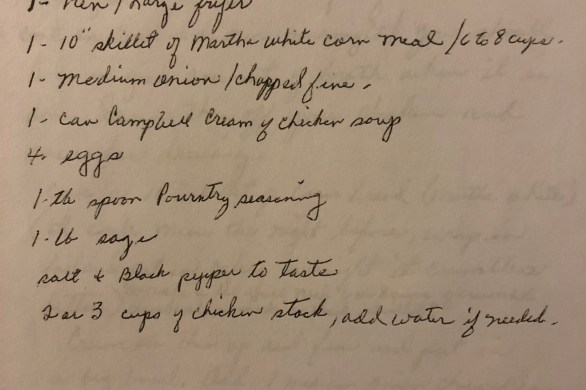 1- Hen / Large fryer
1- 10" skillet of Martha white corn meal / 6 to 8 cups.
1- medium onion / chopped fine.
1- can Campbell Cream of chicken soup
4- eggs
1-tb spoon Pourntry seasoning
1-tb sage
salt & Black pepper to taste
2 or 3 cups of chicken stock, add water if needed.